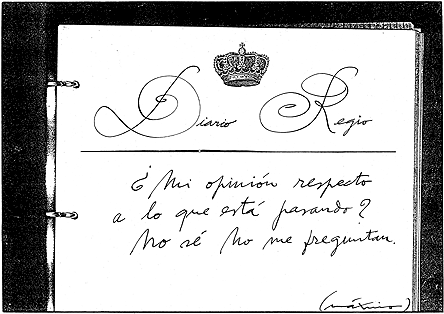 Diario Regio
¿Mi opinión respecto
a lo que está pasando?
No sé No me preguntan.
(máximo)